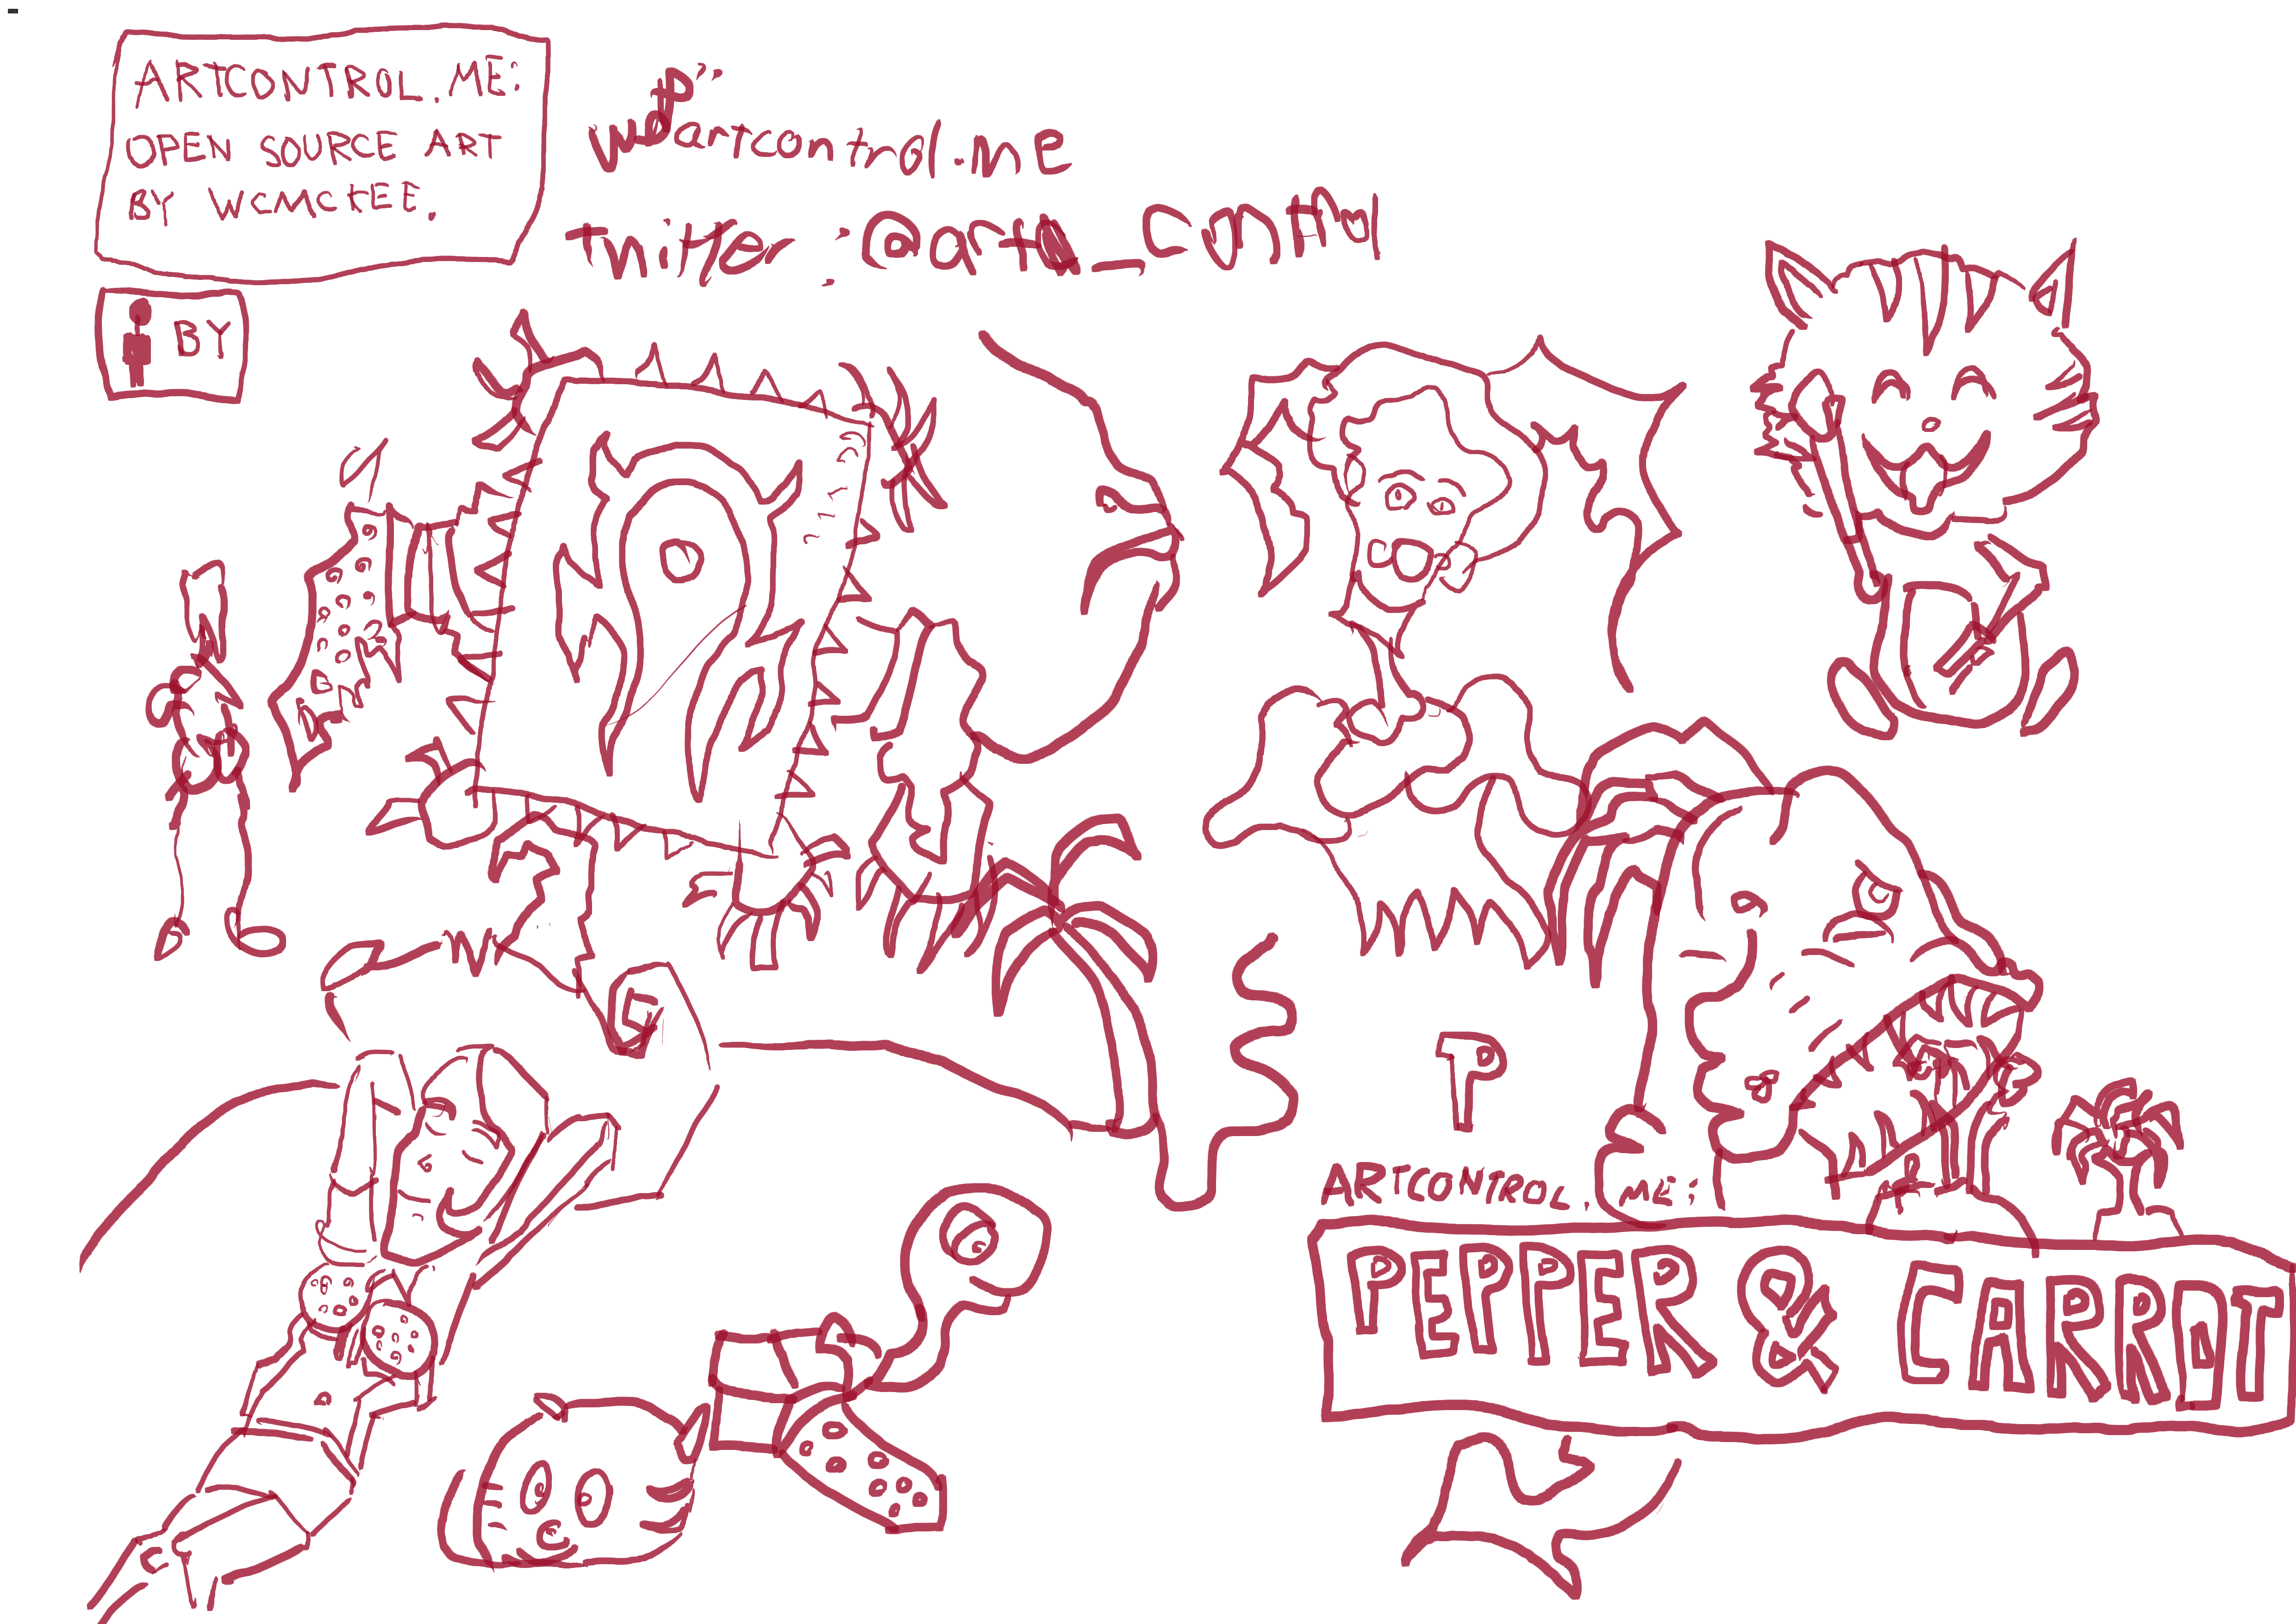 ARTCONTROL.ME:
OPEN SOURCE ART
BY WCMCKEE.
BY
artcontrol.me
twitter:
P
ARTCONTROL.ME:
PEPPER & CARROT